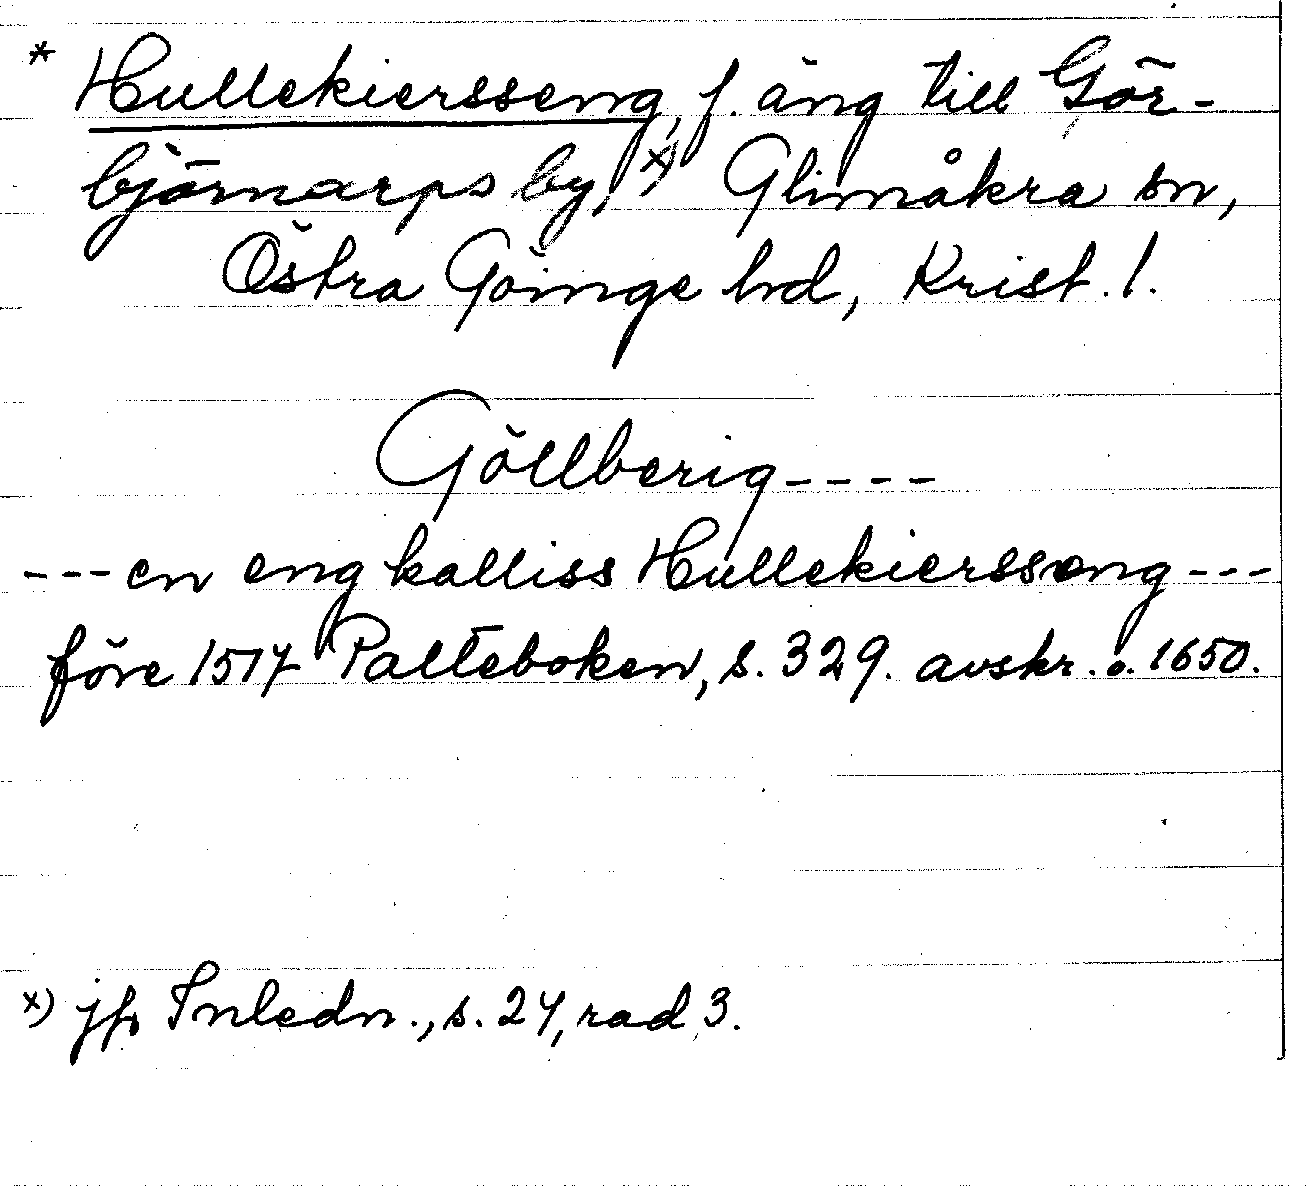 * Hullekiersseng, f. äng till Gör-
björnarps by, x) Glimåkra sn,
Östra Göinge hd, Krist. l.
Göllberig - - - -
- - - en eng kalliss Hullekiersseng - - -
före 1517 Palteboken, s. 329. avskr. o. 1650.
x) jfr Inledn., s. 24, rad 3.